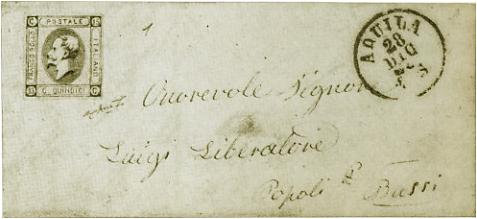 C POSTALE 15
FRANCO BOLLO
ITALIANO
15 C. QUINDICI C
AQUILA
28
DIC
Onorevole Signor
Luigi Liberatore
Popoli Bussi